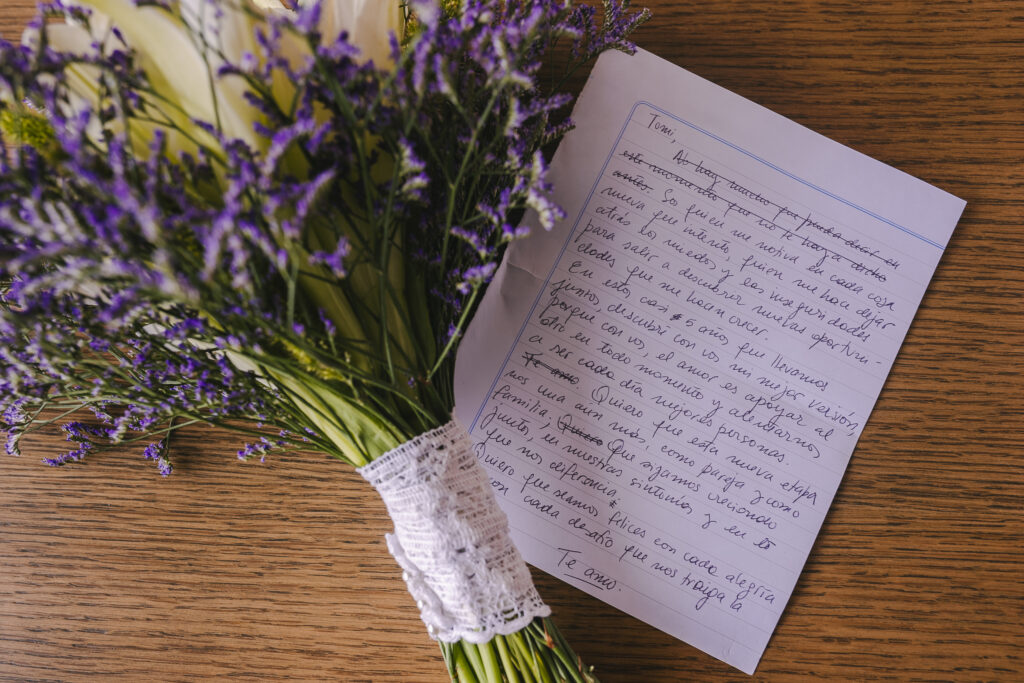 Tomi,
No hay mucho que pueda decir en
este momento que no te haya dicho
antes. Sos quien me motiva en cada cosa
nueva que intento, quien me hace dejar
atrás los miedos y las inseguridades
para salir a descubrir nuevas oportuni-
dades que me hacen crecer.
En estos casi 5 años que llevamos
juntos descubrí con vos mi mejor versión,
porque con vos, el amor es apoyar al
otro en todo momento y alentarnos
a ser cada día mejores personas.
Te amo Quiero que esta nueva etapa
nos una aun más, como pareja y como
familia, Quiero Que sigamos creciendo
juntos, en nuestras sintonías y en lo
que nos diferencia.
Quiero que seamos felices con cada alegría
con cada desafío que nos traiga la
Te amo.